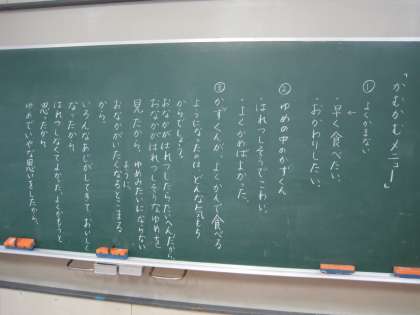 「かむかむメニュー」
① よくかまない
・早く食べたい。
・おかわりしたい。
② ゆめの中のかずくん
・はれつしそうでこわい。
・よくかめばよかった。
③ かずくんが、よくかんで食べる
ようになったのは、どんな気もち
からでしょう。
おなかがはれつしたらたいへんだから。
おなかがはれつしそうなゆめを
見たから、ゆめみたいにならない
ように。
おなかがいたくなるとこまる
から。
いろんなあじがしてきて、おいしく
なったから
はれつしなくてよかった、よくかもうと
思ったから。
ゆめでいやな思いをしたから。